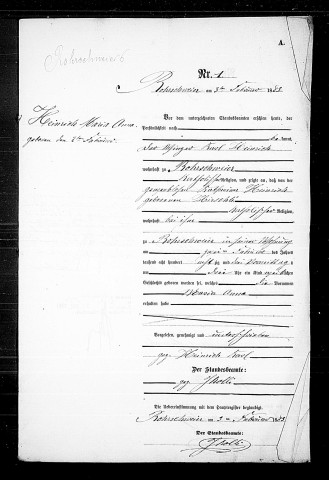 Rohrschweier
A.
Nr. 1
Rohrschweier am 3ten Februar 1883
Heinrich Maria Anna
geboren den 2ten Februar
Vor dem unterzeichneten Standesbeamten erschien heute, der
Persönlichkeit nach
kannt,
der Winzer Karl Heinrich
wohnhaft zu Rohrschweier
katholischer Religion, und zeigte an, daß von der
Heinrich
geborenen
katholischer Religion,
wohnhaft bei ihm
zu Rohrschweier in seiner Wohnung
am zwei Februar des Jahres
tausend acht hundert achtzig und drei Vormittags
um drei Uhr ein Kind weiblichen
Geschlechts geboren worden sei, welches die Vornamen
Maria Anna
erhalten habe
Vorgelesen, genehmigt und unterschrieben
gez. Heinrich Karl
Der Standesbeamte:
gez.
Die Uebereinstimmung mit dem Hauptregister beglaubigt.
Rohrschweier am 3ten Februar 1883
Der Standesbeamte: